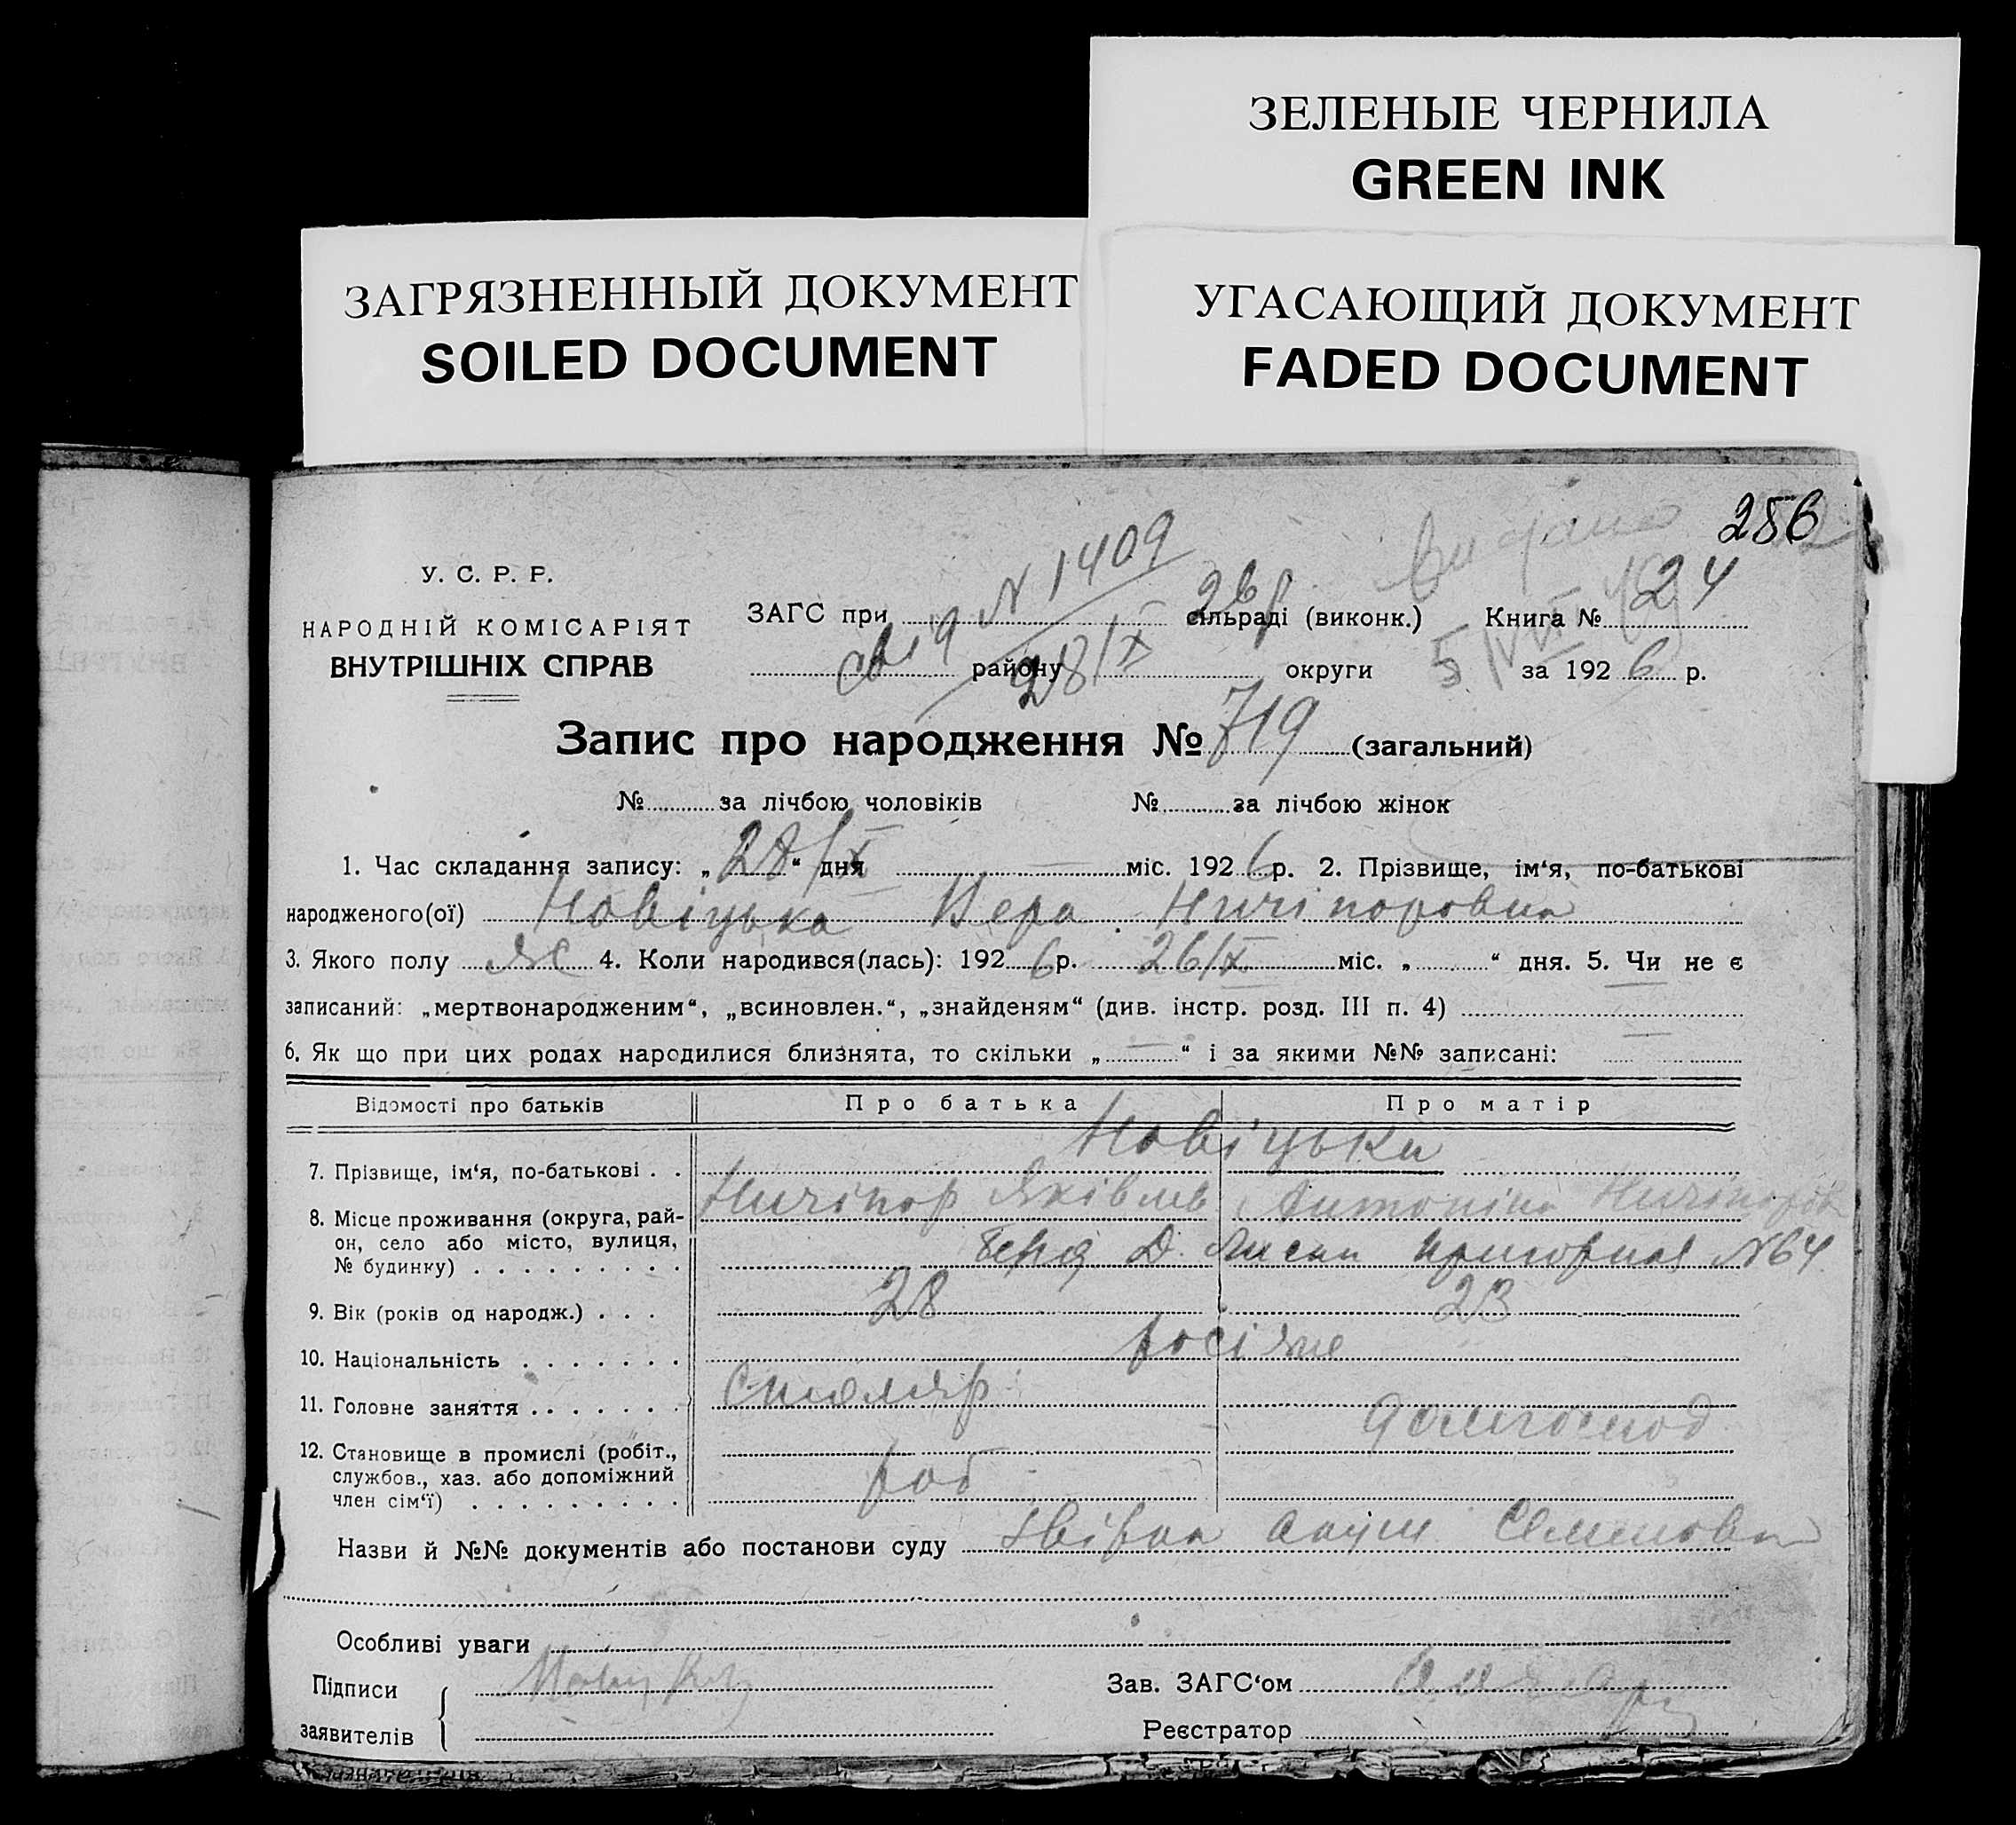 ЗЕЛЕНЫЕ ЧЕРНИЛА
GREEN INK
ЗАГРЯЗНЕННЫЙ ДОКУМЕНТ
SOILED DOCUMENT
УГАСАЮЩИЙ ДОКУМЕНТ
FADED DOCUMENT
256
У. С. Р. Р.
НАРОДНІЙ КОМІСАРІЯТ
ВНУТРІШНІХ СПРАВ
N 1409
28/IX
ЗАГС при сільраді (виконк.) Книга № 24
району округи за 1926 р.
Запис про народження № 719 (загальний)
№ за лічбою чоловіків № за лічбою жінок
1. Час складання запису: „28/IX“ дня міс. 1926 р. 2. Прізвище, ім‘я, по-батькові
народженого(ої) Новіцька Вера Ничіпоровна
3. Якого полу Ж 4. Коли народився(лась): 1926 р. 26/IX міс. „ “ дня. 5. Чи не є
записаний: „мертвонародженим“, „всиновлен.“, „знайденям“ (див. інстр. розд. III п. 4)
6. Як що при цих родах народилися близнята, то скільки „ “ і за якими №№ записані:
Відомості про батьків Про батька Про матір
7. Прізвище, ім‘я, по-батькові . . Новіцьки
Ничіпор Яківлев Антоніна Ничіпоров
8. Місце проживання (округа, рай-
он, село або місто, вулиця,
№ будинку) . . . . . . . . . Д. Лиски Пригорная N 64
9. Вік (років од народж.) . . . 28 23
10. Національність . . . . . . . росіяне
11. Головне заняття . . . . . . . Столяр домгоспод
12. Становище в промислі (робіт.,
службов., хаз. або допоміжний
член сім‘ї) . . . . . . . . . роб
Назви й №№ документів або постанови суду акуш
Особливі уваги
Підписи
заявителів
Зав. ЗАГС‘ом
Реєстратор